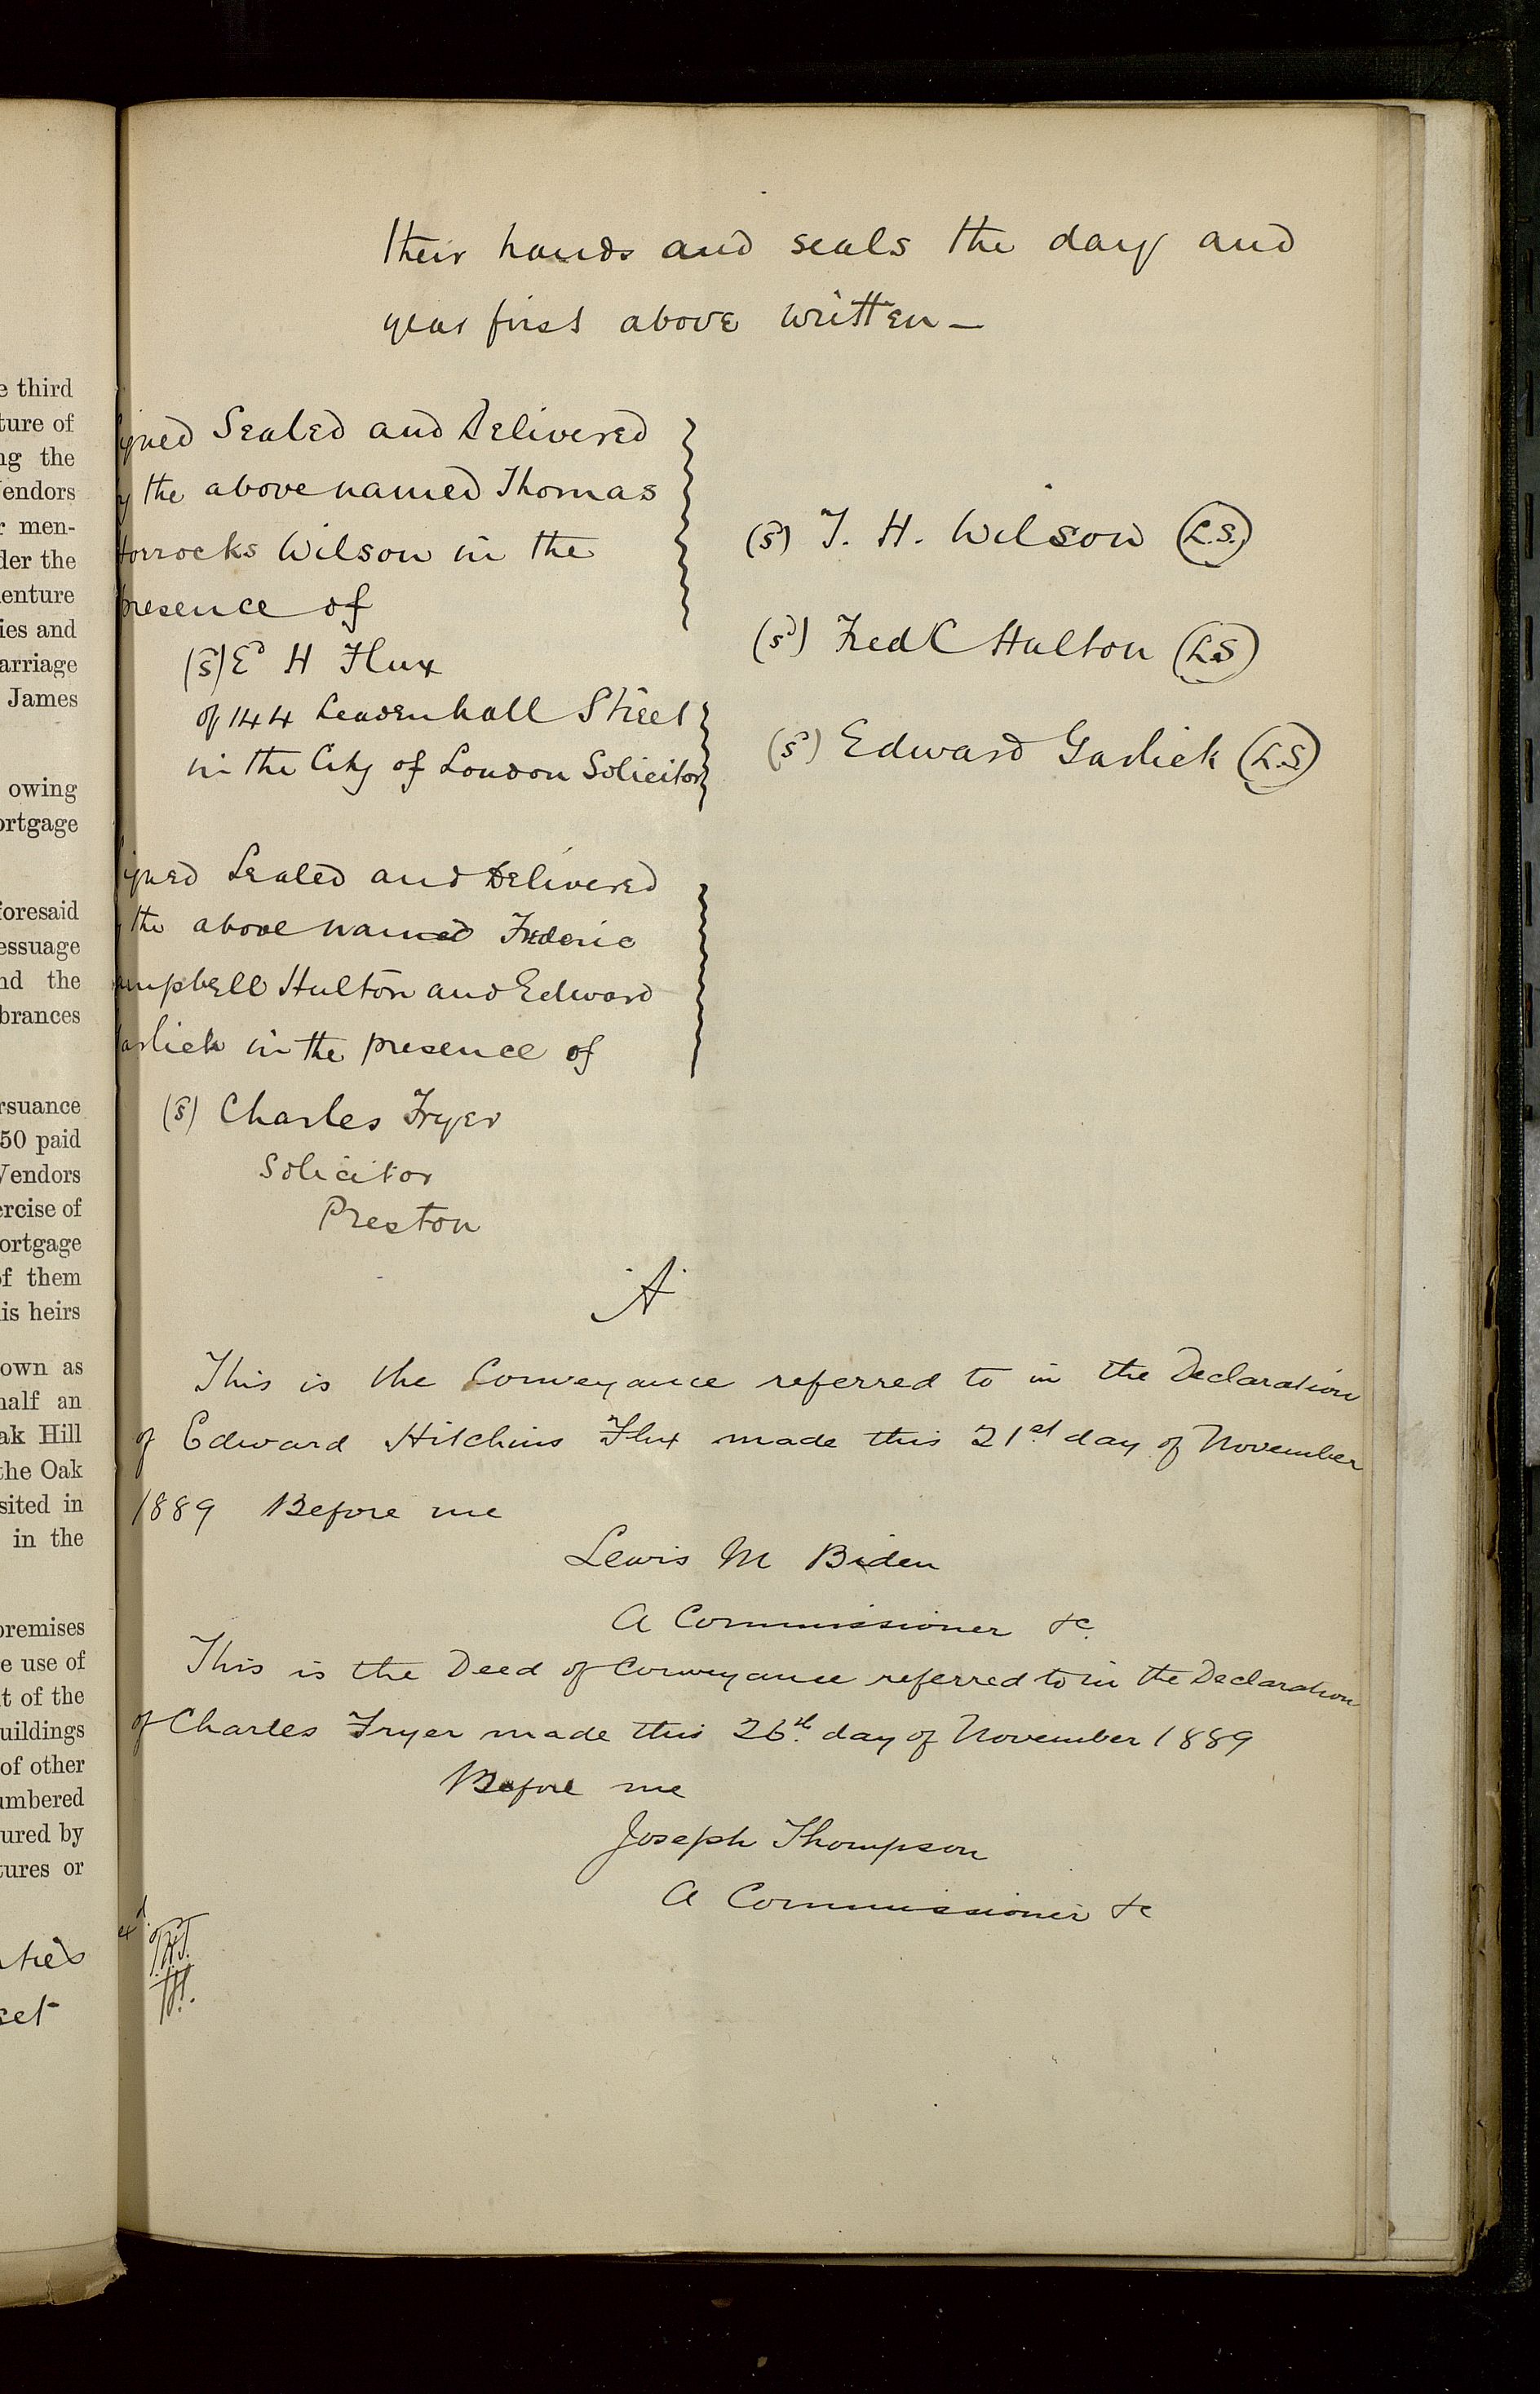 e third
ture of
ng the
Vendors
r men-
der the
enture
ies and
arriage
James
owing
ortgage
foresaid
essuage
nd the
brances
rsuance
50 paid
Vendors
ercise of
ortgage
of them
is heirs
own as
half an
ak Hill
the Oak
sited in
in the
premises
e use of
t of the
uildings
of other
umbered
ured by
tures or
set
their hands and seals the day and
year first above written —
igned Sealed and Delivered
y the above named Thomas
Horrocks Wilson in the
presence of
(s) Ed H Flux
of 144 Leadenhall Street
in the City of London Solicitor
(sd) T. H. Wilson (L.S.)
(sd) Fred C Hulton (L.S)
(sd) Edward Garlick (L.S)
igned Sealed and Delivered
the above named Frederic
ampbell Hulton and Edward
arlick in the presence of
(s) Charles Fryer
Solicitor
Preston
"A"
This is the Conveyance referred to in the Declaration
of Edward Hitchins Flux made this 21st day of November
1889 Before me
Lewis M Biden
A Commissioner &c.
This is the Deed of Conveyance referred to in the Declaration
of Charles Fryer made this 26th day of November 1889
Before me
Joseph Thompson
A Commissioner &c